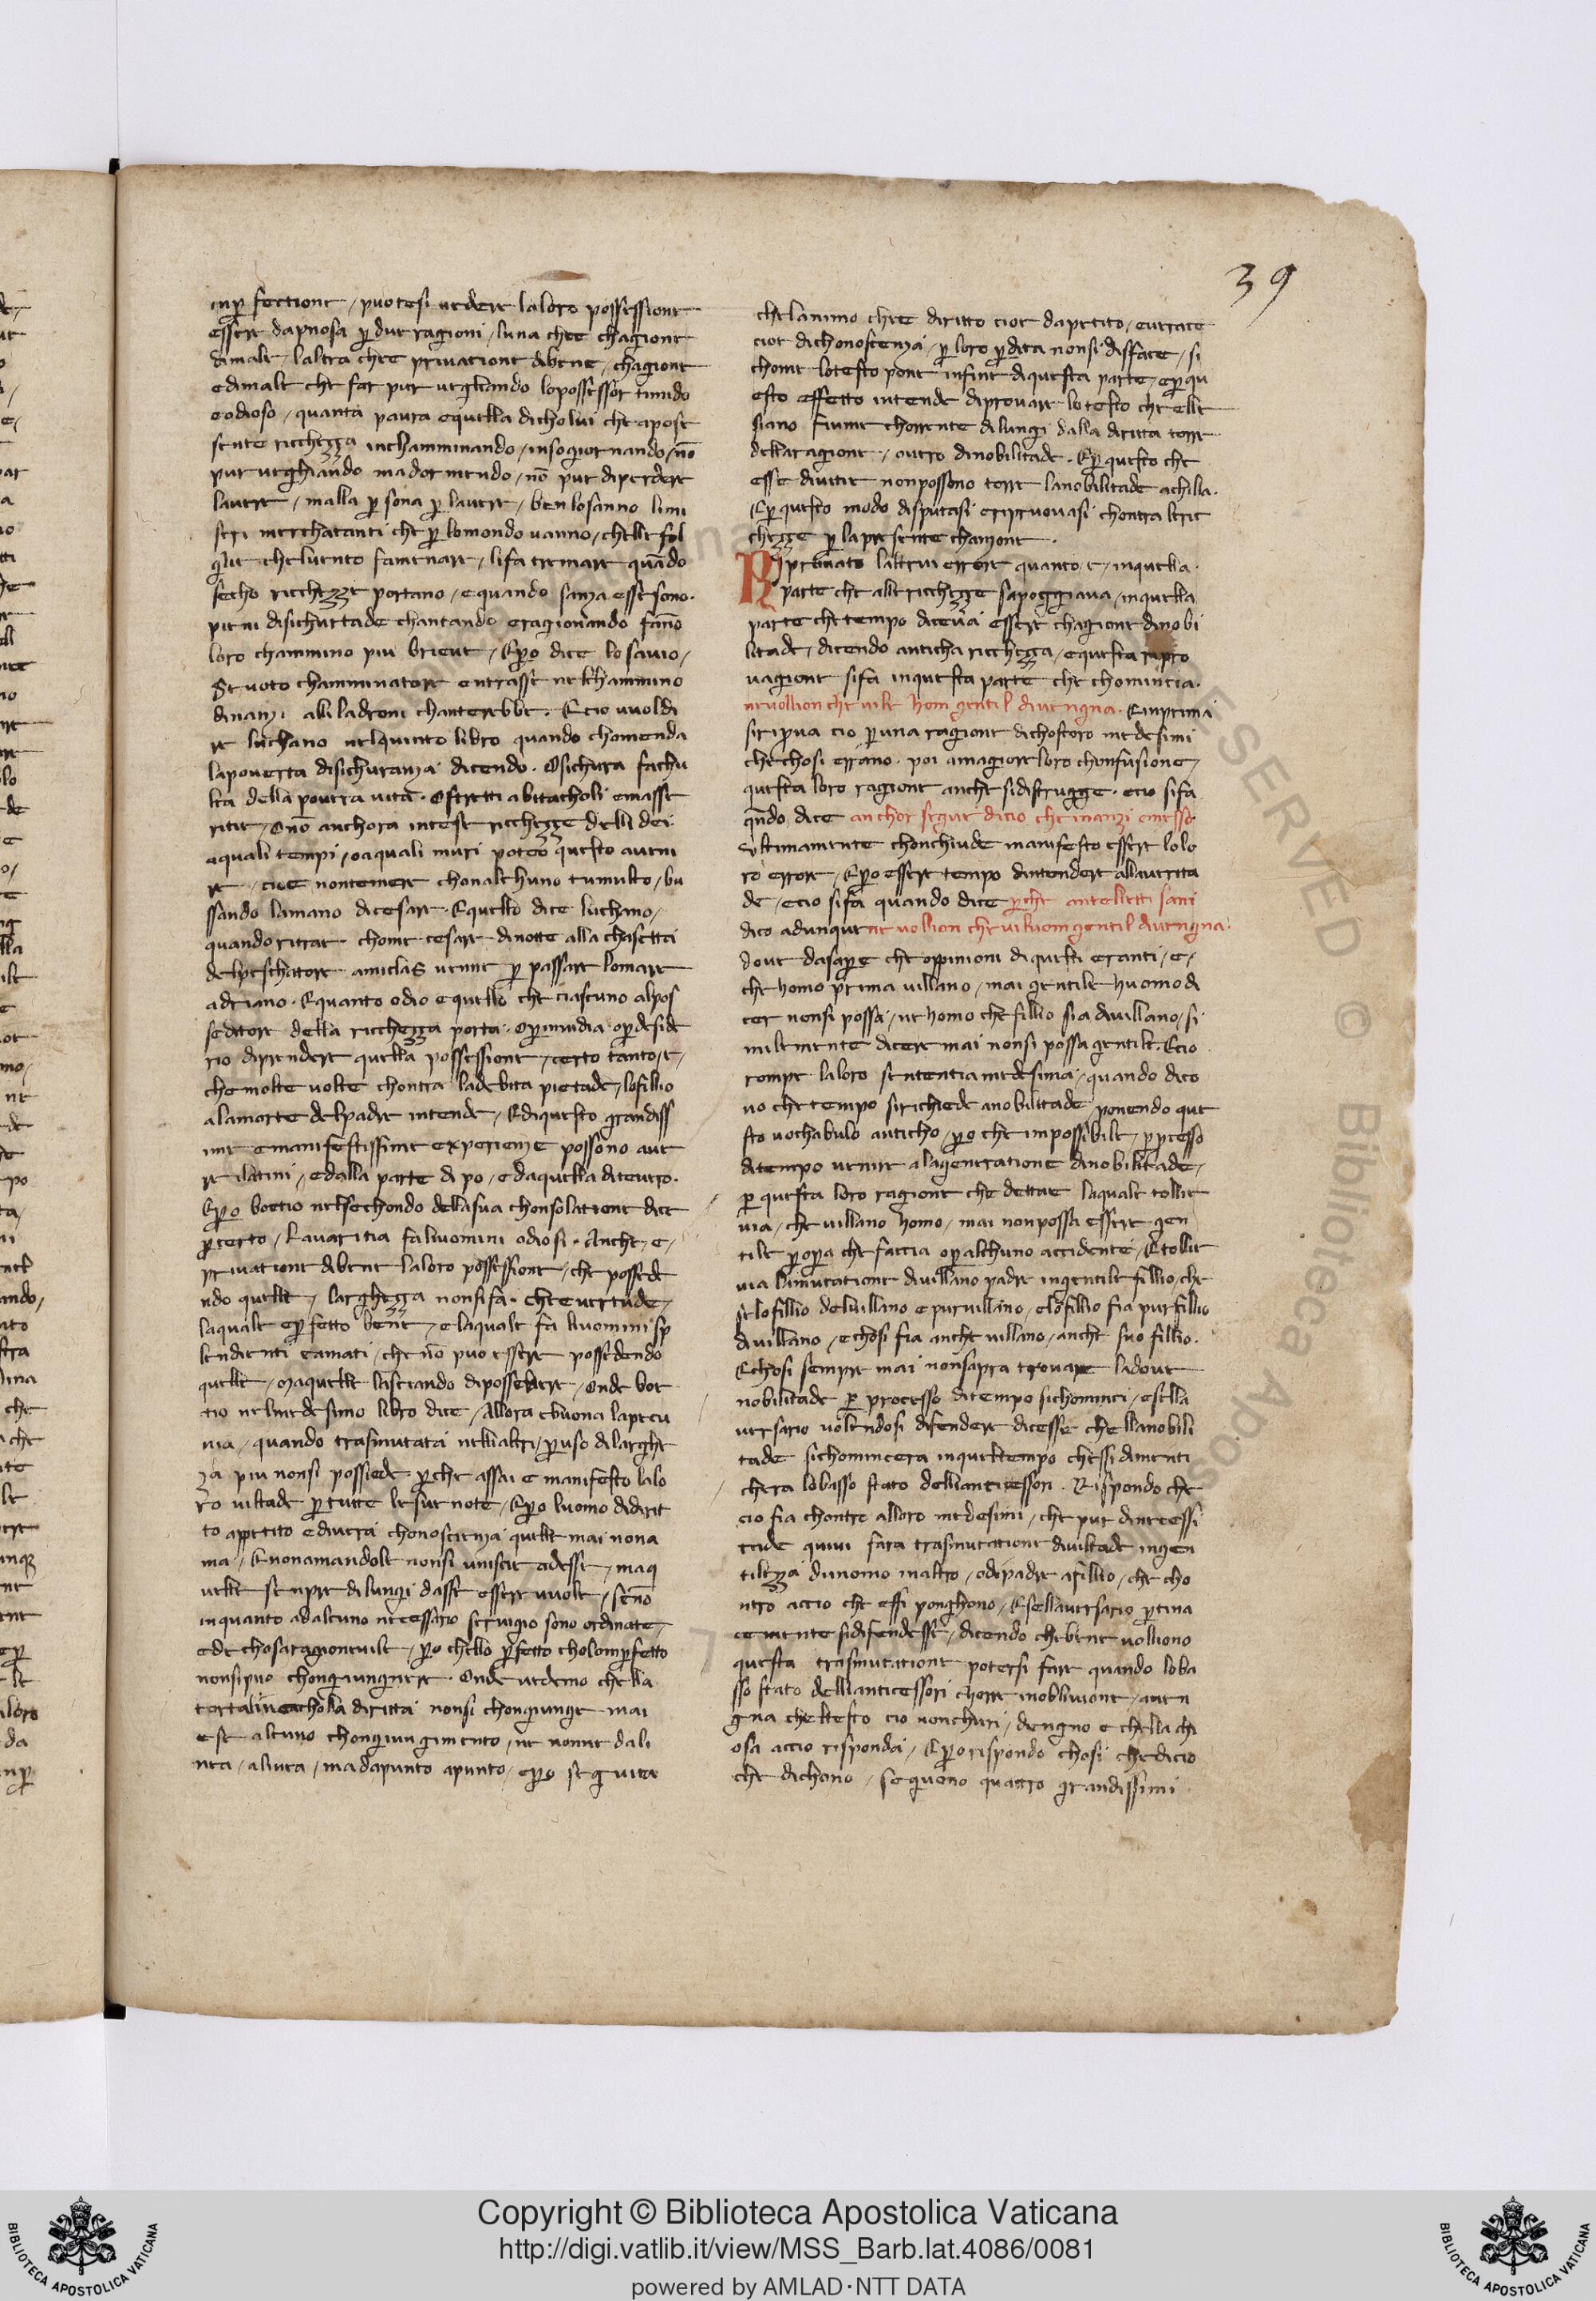 39
inp fectione / puotesi vedere laloro possessione
essere dapnosa p due ragioni / luna chee chagione
dimale / laltra chee privatione dibene / chagione
edimale che fae pur vegliando lopossessor timido
eodioso / quanta paura equella dicholui che apose
sente ricchezza inchamminando / insogiornando / nō
pur veghiando ma dormendo / nō pur diperdere
lavere / malla p sona p lavere / ben losanno limi
seri merchatanti che p lomondo vanno / chelle fol
glie chelvento famenare / lifa tremare quādo
secho ricchezze portano / equando sanza esse sono.
pieni disichurtade chantando eragionando fāno
loro chammino piu brieve / Epo dice lo savio /
Se voto chamminatore entrasse nelchammino
dinanzi alli ladroni chanterebbe. Ecio vuoldi
re luchano nelquinto libro quando chomenda
lapoverta disichuranza dicendo. Osichura fachu
lta della povera vita. Ostretti abitacholi emasse
ritie / Onō anchora intese ricchezze delli dei.
aquali tempi / oaquali muri poteo questo aveni
re / cioe nontemere chonalchuno tumulto / bu
ssando lamano dicesare. Equello dice luchano /
quando ritrae chome cesare dinotte alla chasetta
delpeschatore amiclas venne p passare lomare
adriano. Equanto odio equello che ciascuno alpos
seditore della ricchezza porta. Opinvidia opdeside
rio diprendere quella possessione / certo tanto / e /
che molte volte chontra ladebita pietade / lofillio
alamorte delpadre intende / Ediquesto grandiss
ime emanifestissime experienze possono ave
re ilatini / edalla parte di po / edaquella ditevero.
Epo boetio nelsechondo dellasua chonsolatione dice
pcerto / Lavaritia faliuomini odiosi. Anche / e /
privatione dibene laloro possessione / che possede
ndo quelle / larghezza nonsifa. cheevertude /
laquale epfetto bene / elaqualе fa liuomini sp
lendienti eamati / che nō puo essere possedendo
quelle / Maquelle lasciando dipossedere / Onde boe
tio nelmedesimo libro dice / Allora ebuona lapecu
nia / quando trasmutata nellialtri / puso dilarghe
za piu nonsi possiede. pche assai e manifesto lalo
ro viltade p tutte lesue note / Epo luomo didirit
to appetito ediverа chonoscienza quelle mai nona
ma / Enonamandole nonsi uniscie adesse / maq
uelle sempre dilungi dasse essere vuole / senō
inquanto adalcuno necessario servigio sono ordinate /
ede chosaragionevile / po chello pfetto cholompfetto
nonsipuo chongiungnere. Onde vedemo chella
tortalineacholla diritta nonsi chongiunge mai
ese alcuno chongiungimento / ne nonne dali
nea / alinea / madapunto apunto / epo seguita
chelanimo chee diritto cioe dapetito / everace
cioe dichonoscenza / p loro pdita nonsi disface / si
chome lotesto pone infine diquesta parte / epqu
esto effetto intende diprovare lotesto chelle
siano fiume chorrente dilungi dalla diritta torre
dellaragione / overo dinobilitade. Epquesto che
esse divitie nonpossono torre lanobilitade achilla.
Epquesto modo disputasi eripruovasi chontra leric
chezze p lapresente chanzone.
Riprovato laltrui errore quanto / e / inquella.
parte che alle ricchezze sapoggiava / inquella
parte che tempo diceva essere chagione dinobi
litade / dicendo anticha ricchezza / equesta ripro
vagione sifa inquesta parte che chomincia.
nevollion che vile hom gentil divengna. Einprima
siripruova cio puna ragione dichostoro medesimi
chechosi errano. poi amagiore loro chonfusione /
questa loro ragione anche sidistrugge. ecio sifa
qndo dice anchor segue dicio che inanzi omesso
Ultimamente chonchiude manifesto essere lolo
ro errore / Epo essere tempo dintendere allaverita
de / ecio sifa quando dice pche antelletti sani
dico adunque ne vollion che vilvom gentil divengna.
dove dasape che oppinioni di questi erranti / e /
che homo prima villano / mai gentile huomo di
cer nonsi possa / ne homo che fillio sia divillano / si
milemente dicere mai nonsi possa gentile. Ecio
rompe laloro sententia medesima / quando dico
no che tempo sirichiede anobilitade / ponendo que
sto vochabulo anticho / po che impossibile / pprocesso
ditempo venire alageneratione dinobilitade /
p questa loro ragione che dettae laquale tollie
via / che villano homo / mai nonpossa essere gen
tile popa che faccia opalchuno accidente / Etollie
via lamutatione divillano padre ingentile fillio / che
selo fillio delvillano epurvillano / elo fillio fia pur fillio
divillano / echosi fia anche villano / anche suo fillio.
Echosi sempre mai nonsapra trovare ladove
nobilitade p processo ditempo sichominci / esella
versario volendosi difendere dicesse che llanobili
tade sichomincera inqueltempo chessi dimenti
chera lobasso stato dellianticessori. Rispondo che
cio fia chontro alloro medesimi / che pur dinecessi
tade quivi sara trasmutatione diviltade ingen
tileza dunomo inaltro / odipadre afillio / che cho
ntro accio che essi ponghono / Esellaversario ptina
cemente sidifendesse / dicendo chebene vollione
questa trasmutatione potersi fare quando loba
sso stato dellianticessori chorre inoblivione / aven
gna cheltesto cio nonchuri / dengno e chella chi
osa accio risponda / Epo rispondo chosi chedicio
che dichono / sequeno quattro grandissimi
Copyright © Biblioteca Apostolica Vaticana
http://digi.vatlib.it/view/MSS_Barb.lat.4086/0081
powered by AMLAD·NTT DATA